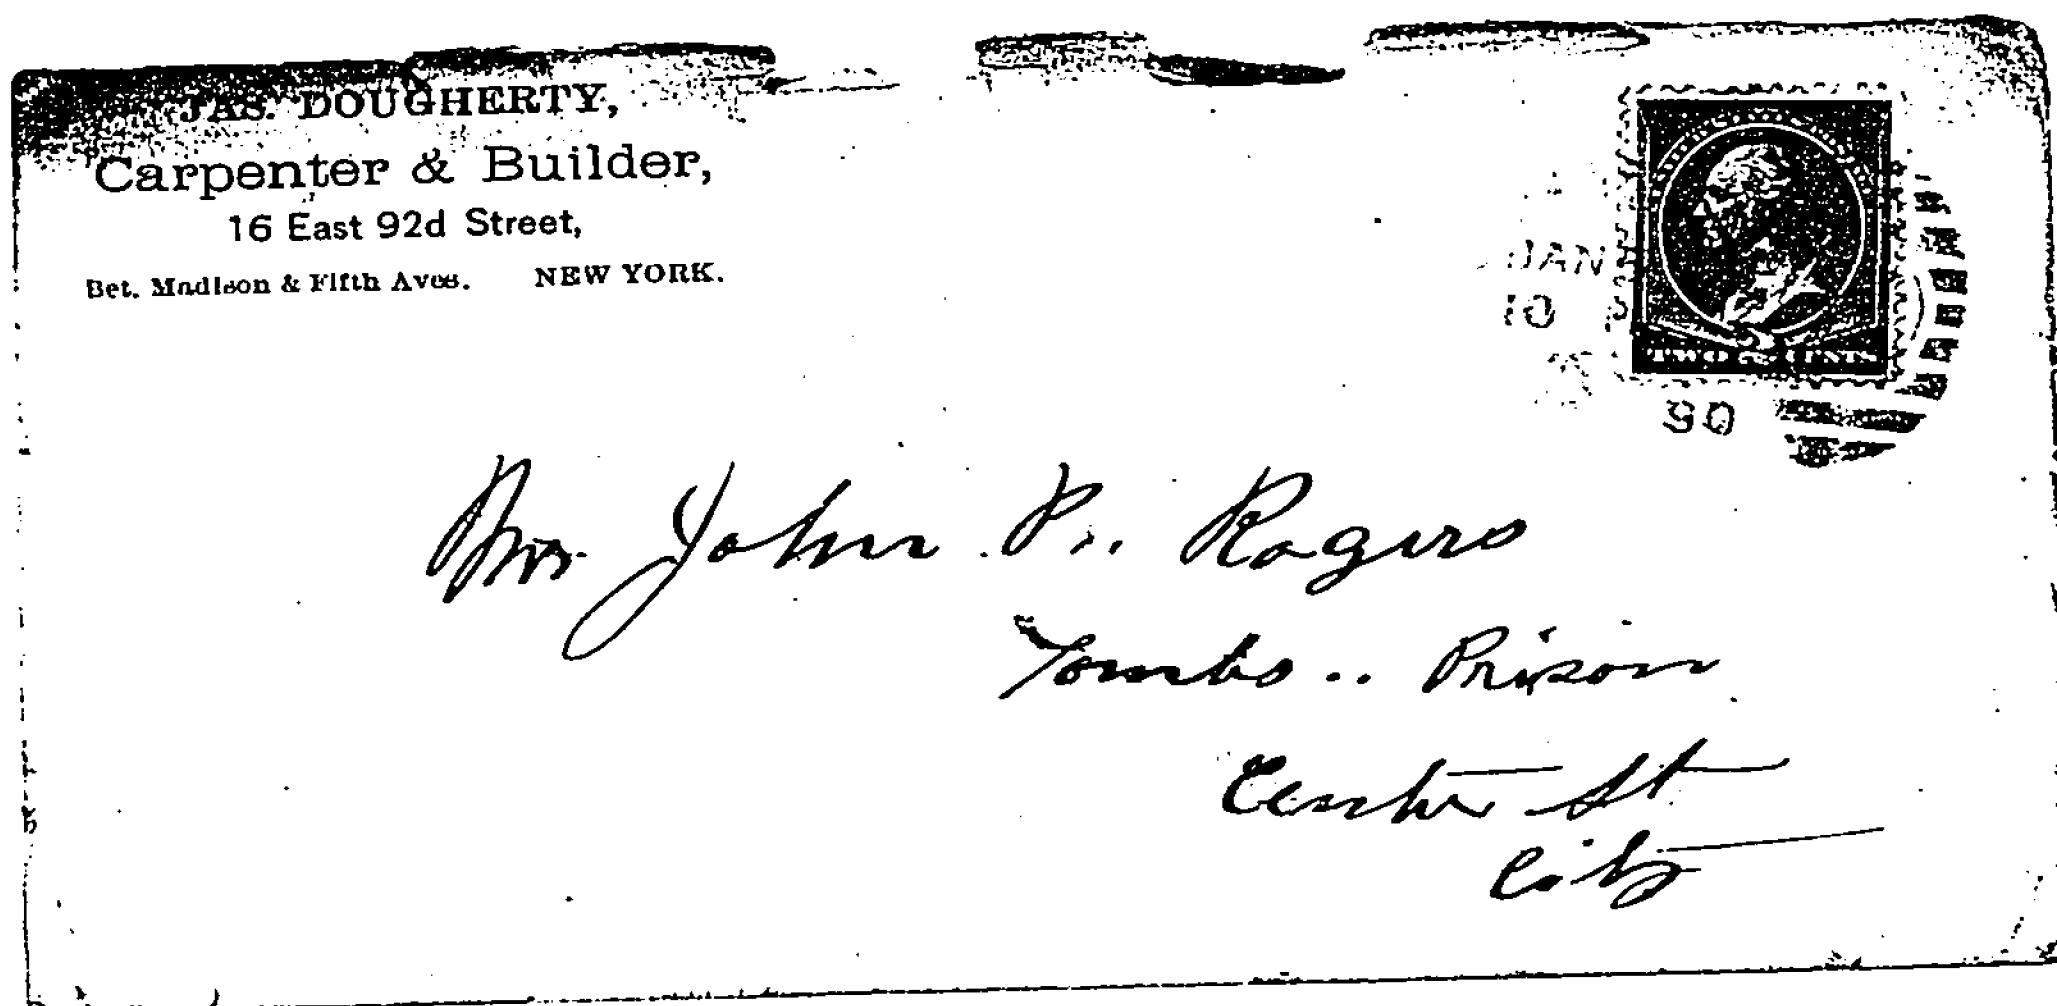 JAS. DOUGHERTY,
Carpenter & Builder,
16 East 92d Street,
Bet. Madison & Fifth Aves. NEW YORK.
JAN
10
90
TWO CENTS
Mr John P.. Rogers
Tombs.. Prison
Center St
City